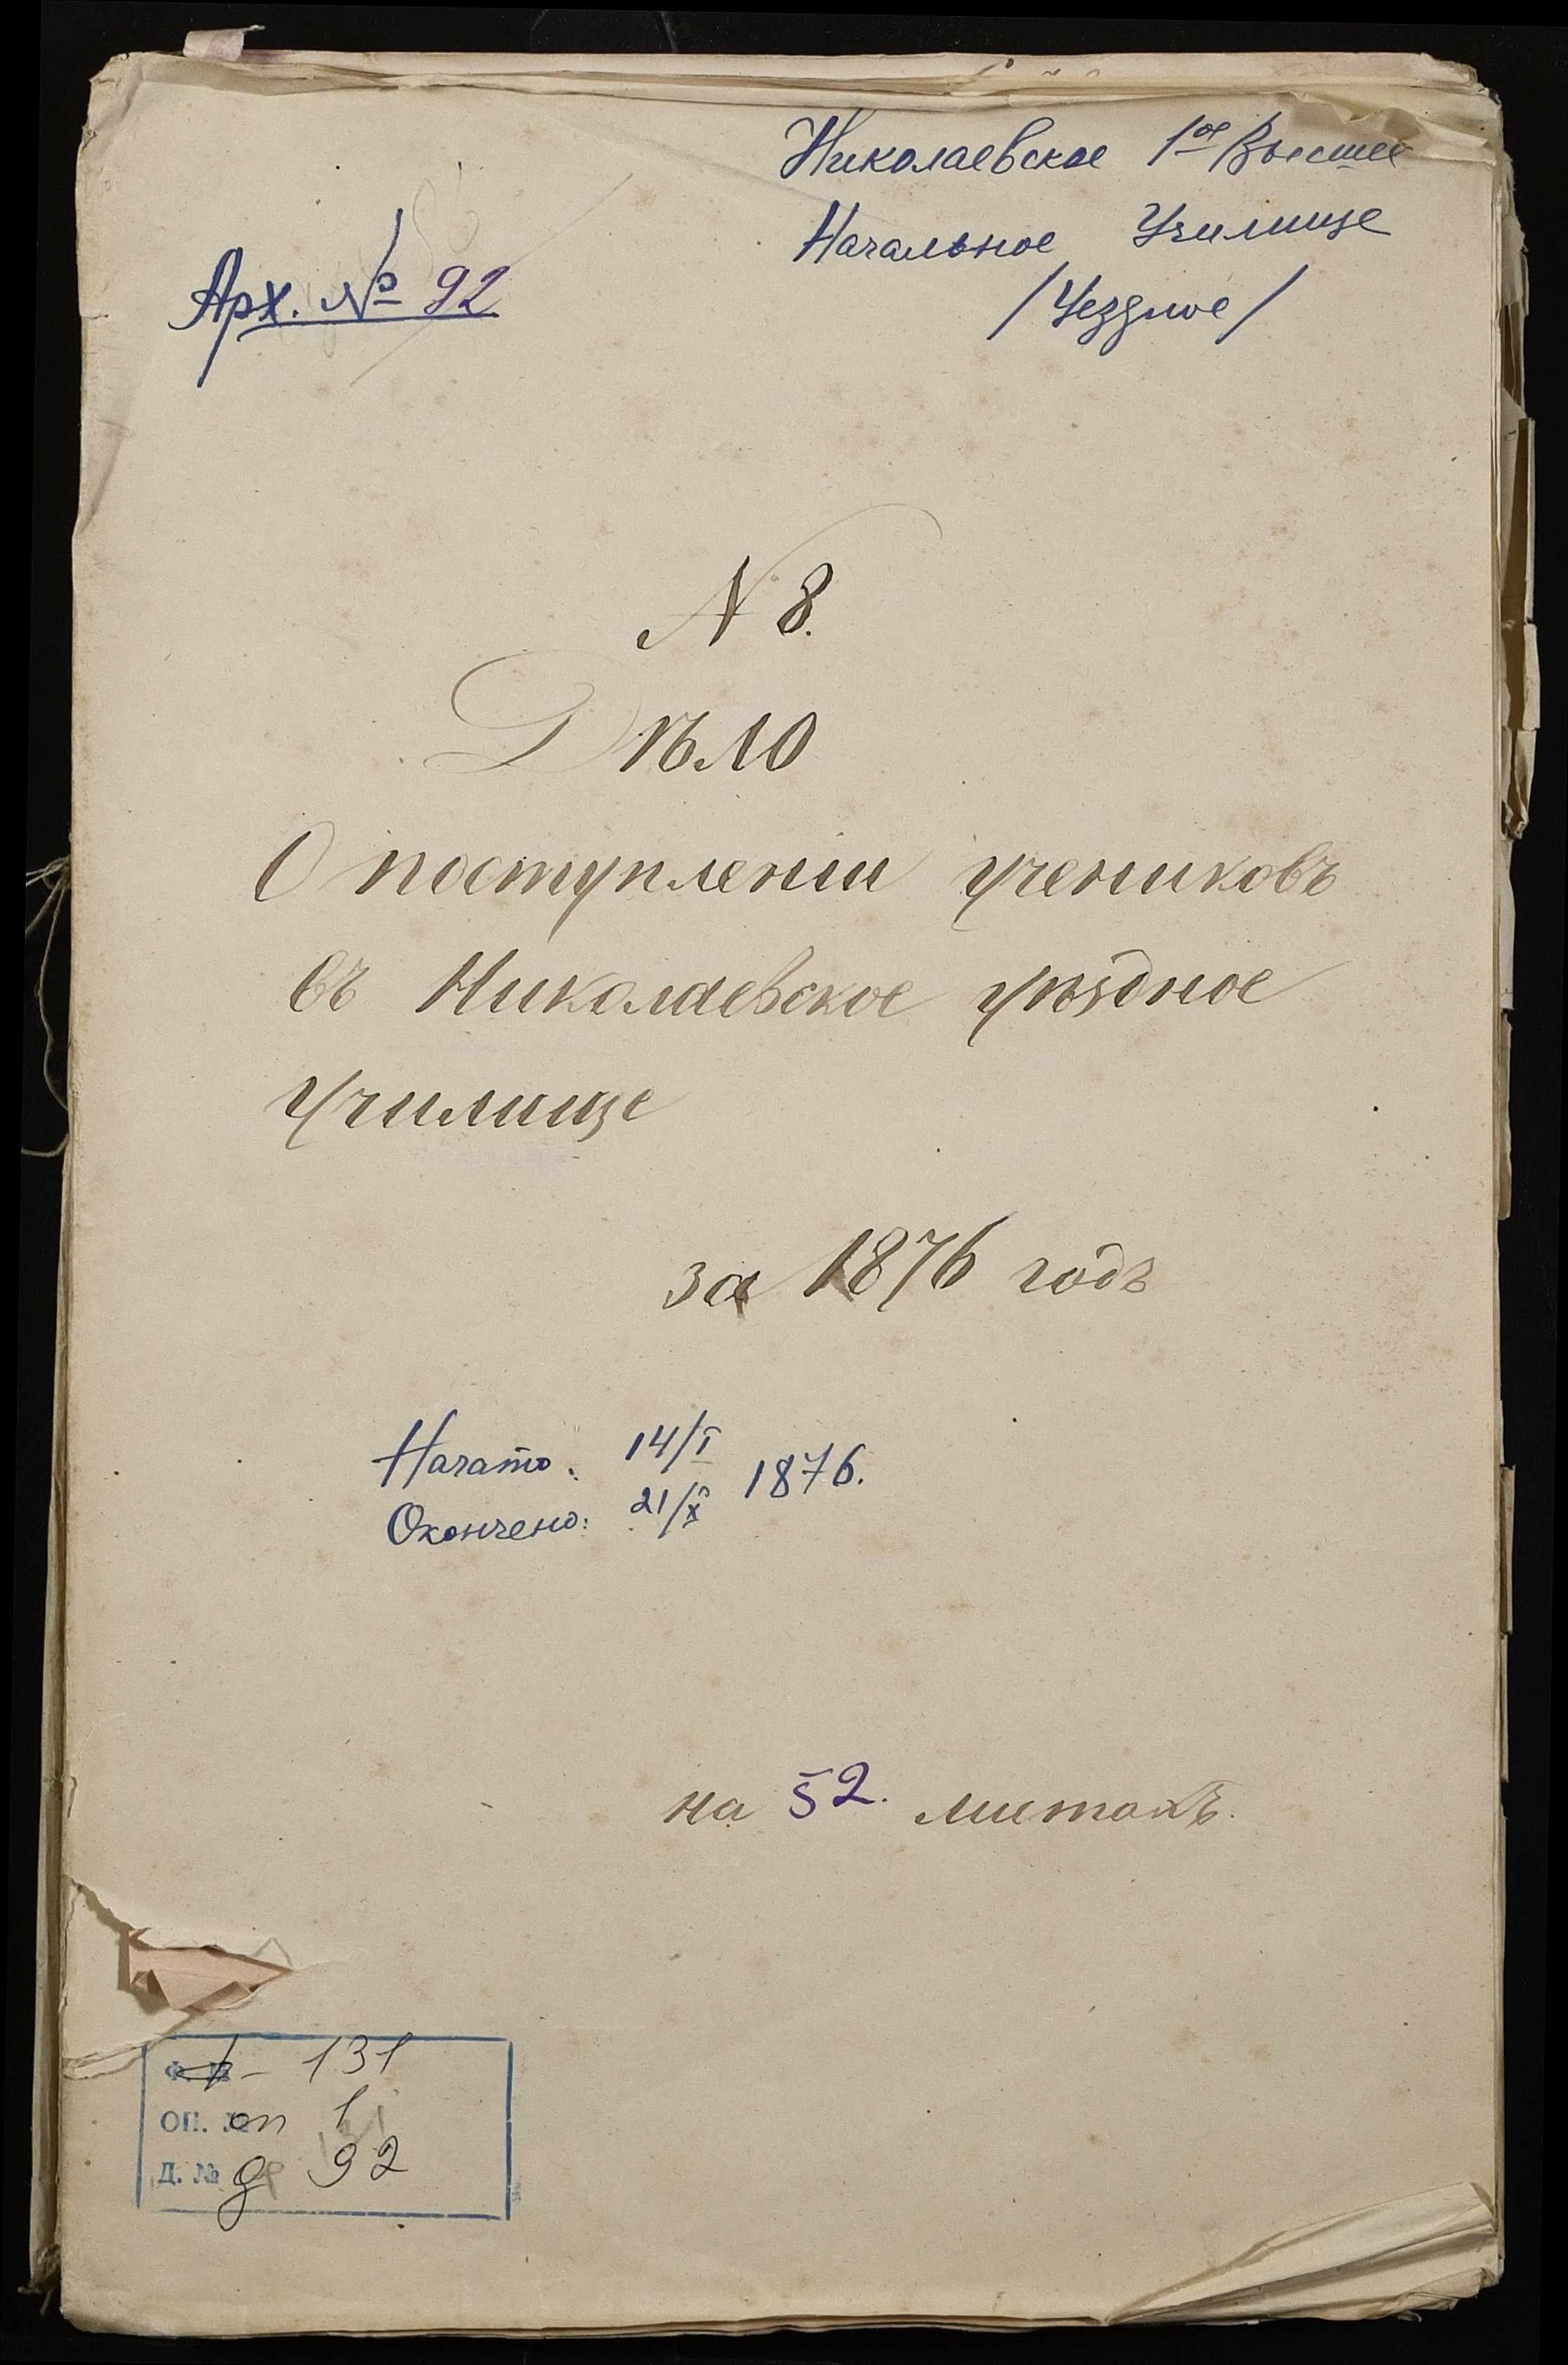 Николаевское 1ое Высшее
Начальное Училище
/Уездное/
Арх. № 92
N 8.
Дѣло
О поступленіи учениковъ
въ Николаевское уѣздное
училище
за 1876 годъ
Начато: 14/I
1876.
Окончено: 21/X
на 52. листахъ.
Ф. № ф – 131
ОП. № оп 1
Д. № д 92